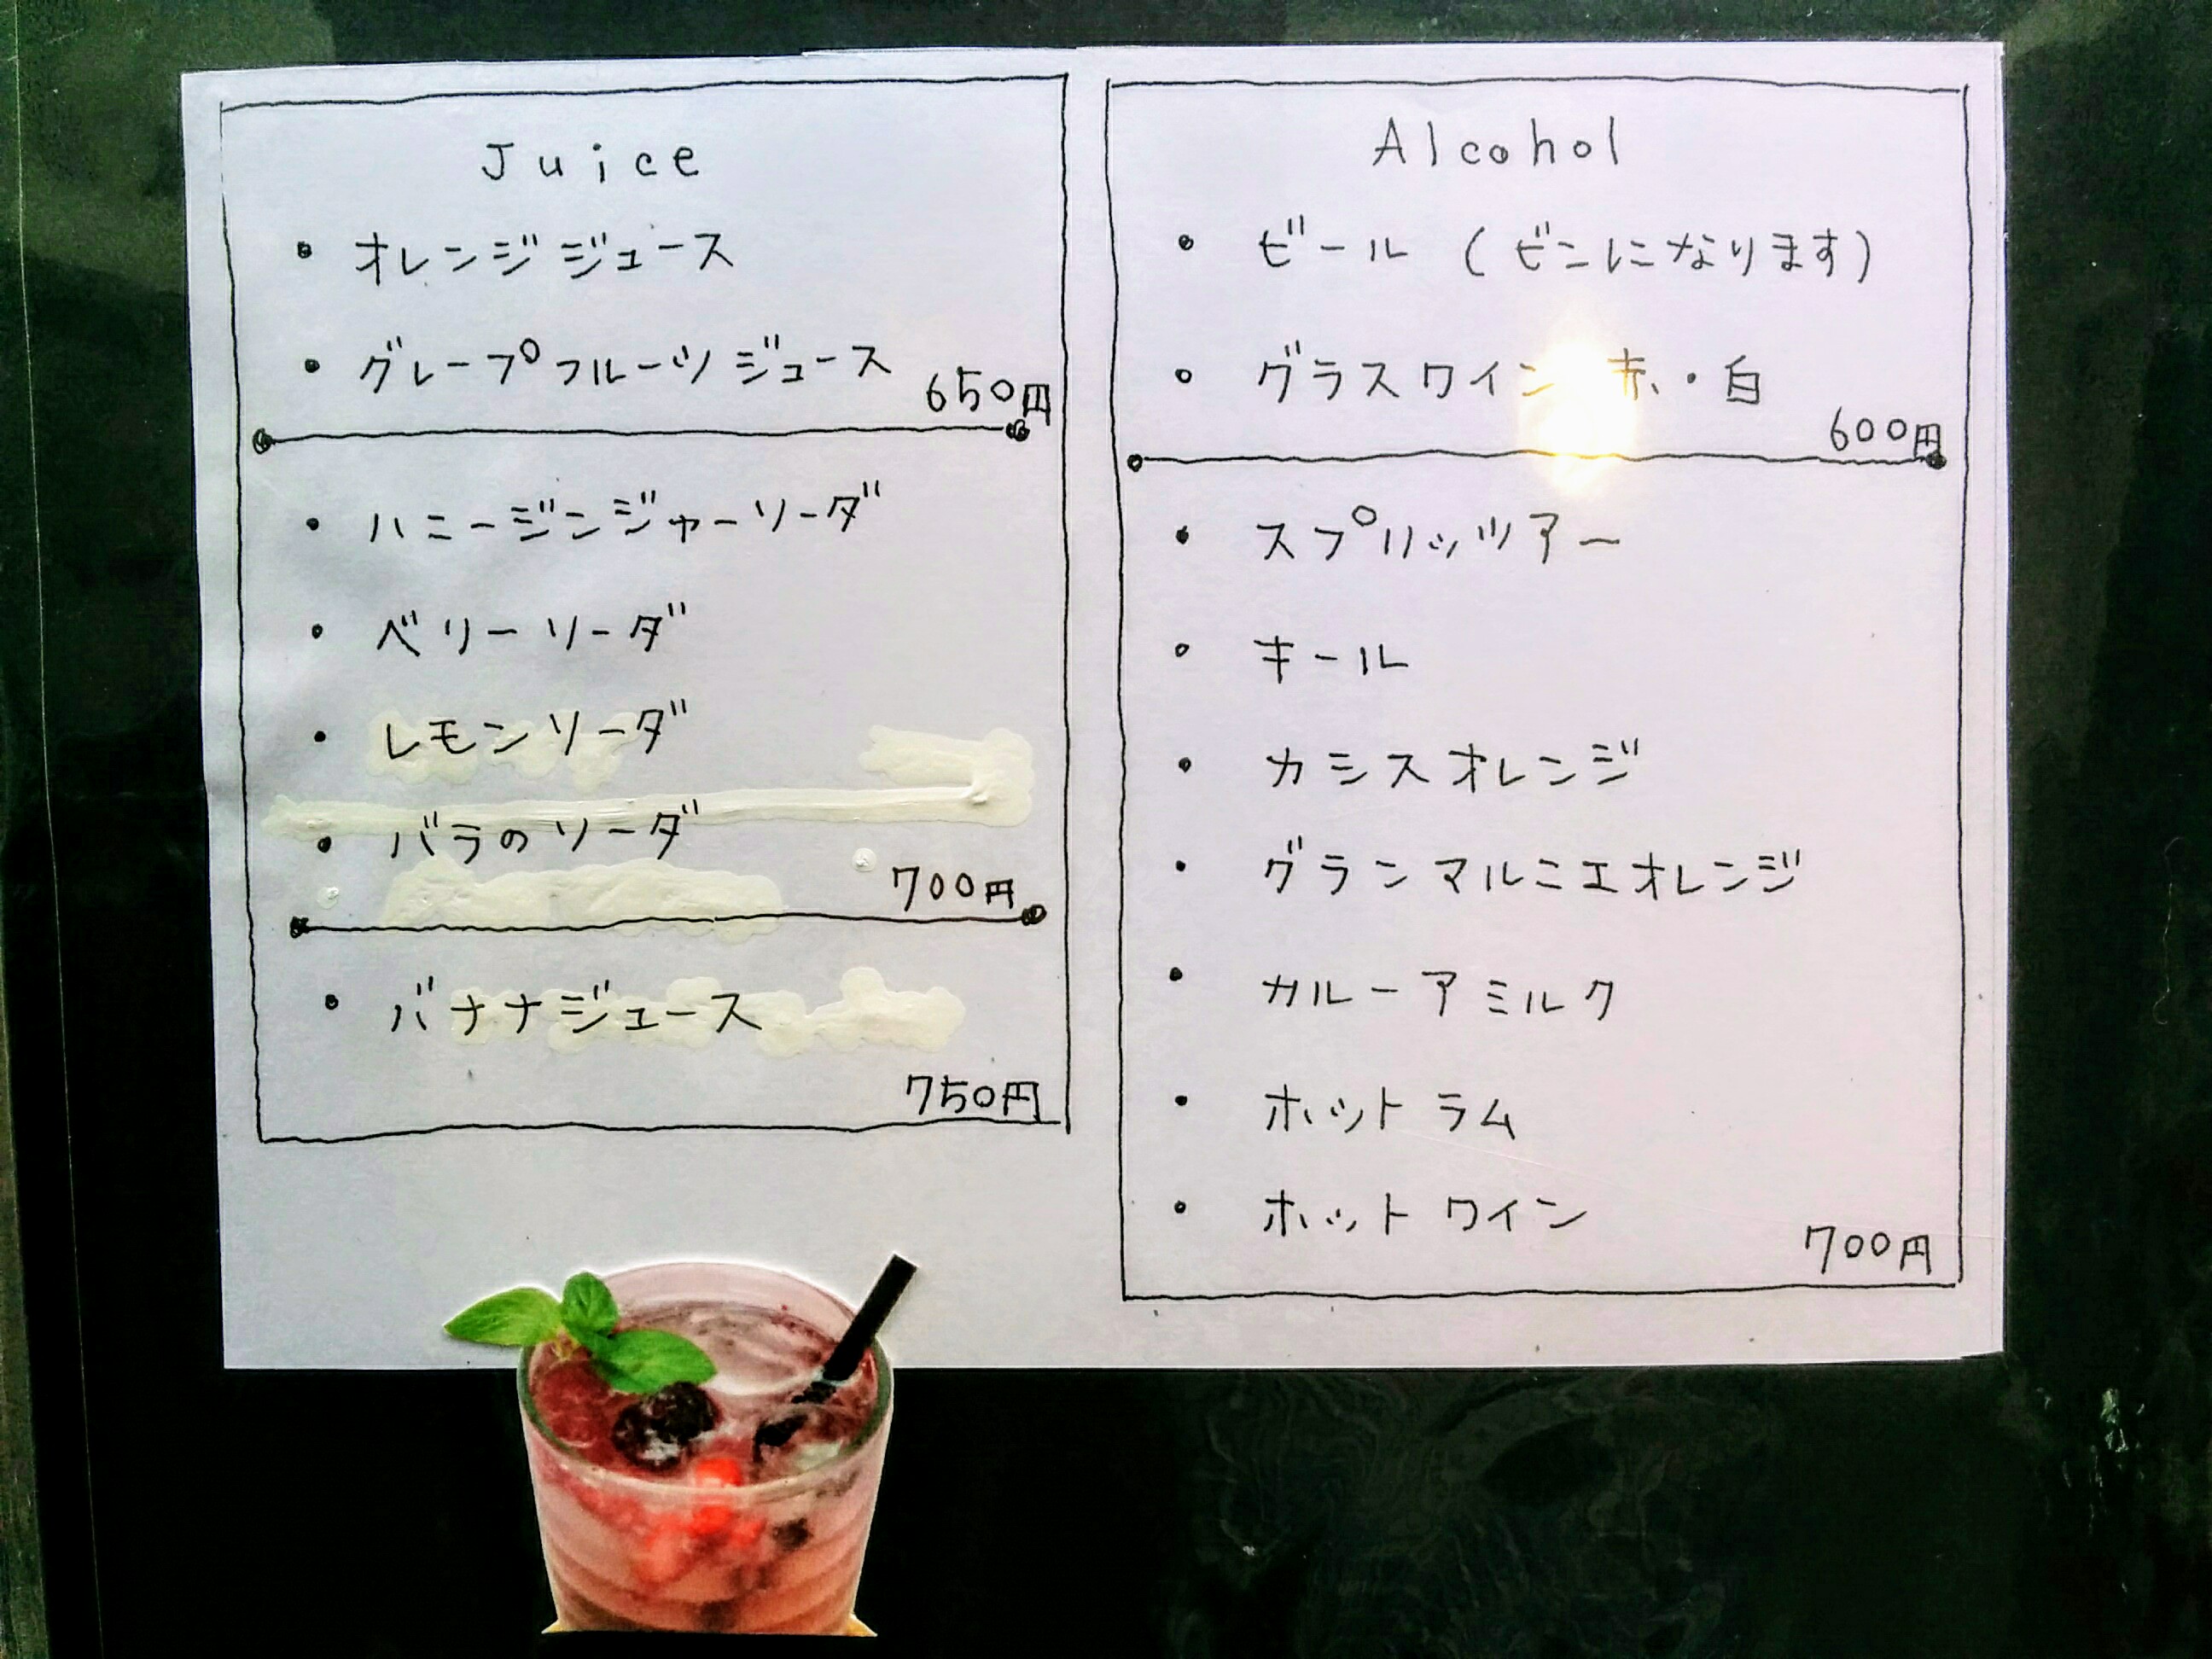 Juice
• オレンジジュース
• グレープフルーツジュース
650円
• ハニージンジャーソーダ
• ベリーソーダ
• レモンソーダ
• バラのソーダ
700円
• バナナジュース
750円
Alcohol
• ビール (ビンになります)
• グラスワイン 赤・白
600円
• スプリッツアー
• キール
• カシスオレンジ
• グランマルニエオレンジ
• カルーアミルク
• ホットラム
• ホットワイン
700円